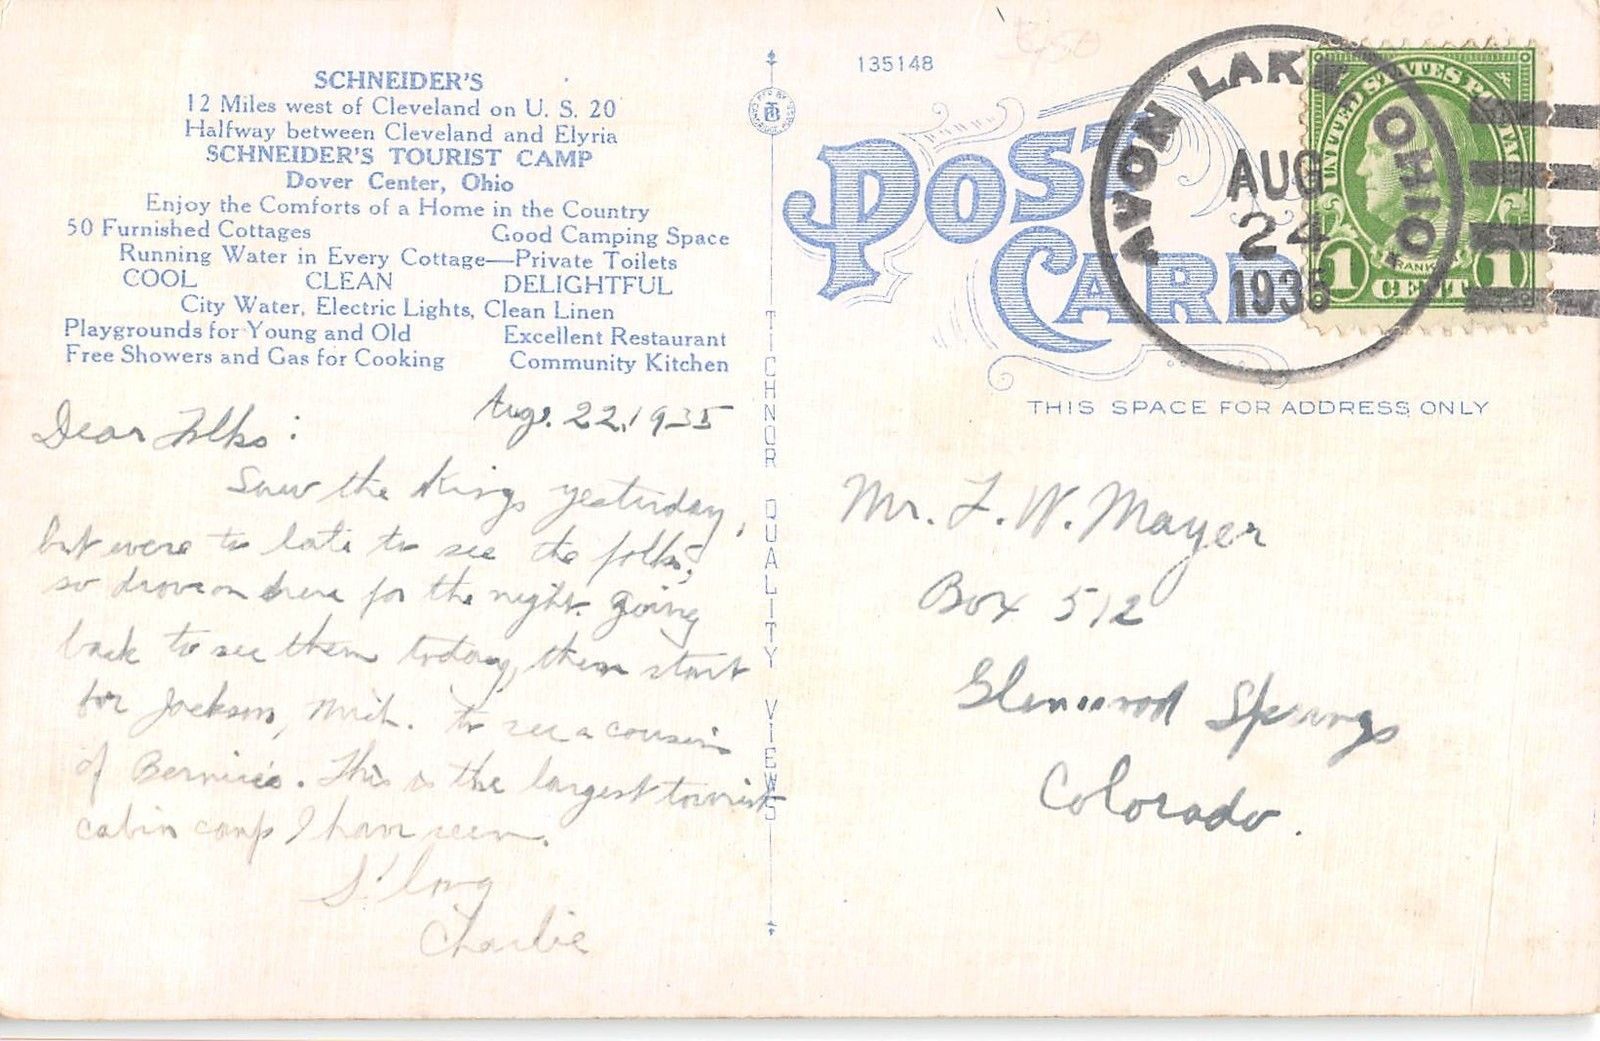 SCHNEIDER'S
12 Miles west of Cleveland on U. S. 20
Halfway between Cleveland and Elyria
SCHNEIDER'S TOURIST CAMP
Dover Center, Ohio
Enjoy the Comforts of a Home in the Country
50 Furnished Cottages Good Camping Space
Running Water in Every Cottage—Private Toilets
COOL CLEAN DELIGHTFUL
City Water, Electric Lights, Clean Linen
Playgrounds for Young and Old Excellent Restaurant
Free Showers and Gas for Cooking Community Kitchen
Aug. 22, 1935
Dear Folks:
Saw the Kings yesterday,
but were to late to see the folks,
so drove on here for the night. Going
back to see them today, then start
for Jackson, Mich. to see a cousin
of Bernice's. This is the largest tourist
cabin camp I have seen.
S'long
Charlie
TICHNOR QUALITY VIEWS
135148
POST CARD
AVON LAKE OHIO
AUG
24
1935
UNITED STATES POSTAGE
FRANKLIN
1 CENT 1
THIS SPACE FOR ADDRESS ONLY
Mr. F. W. Mayer
Box 512
Glenwood Springs
Colorado.